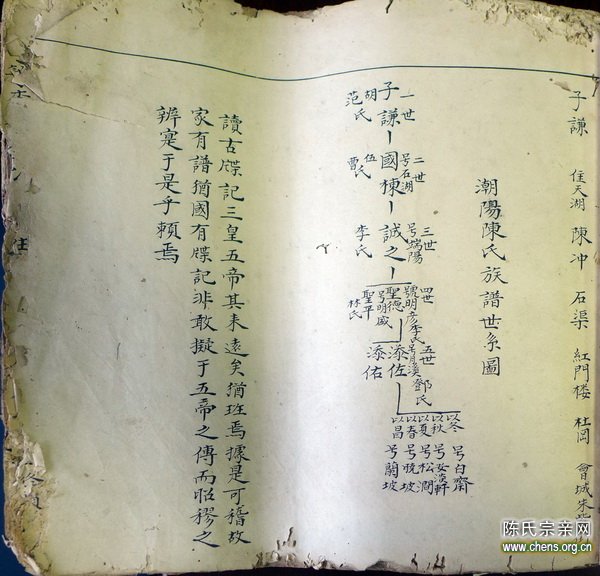 子謙 住天湖 陳冲 石渠 紅門楼 杜岡 會城朱
潮陽陳氏族譜世系圖
一世 二世 號石湖 三世 號端陽 四世 號明彦 李氏 五世 號月溪 鄧氏
子謙 國棟 誠之 聖德 添佐 以冬 號白齋
以秋 號女淡軒
以夏 號松澗
以春 號晚坡
以昌 號蘭坡
聖平 號明盛 林氏 添佑
胡氏 范氏 伍氏 曹氏 李氏
讀古牒記三皇五帝其来遠矣猶班焉據是可稽故
家有譜猶國有牒記非敢擬于五帝之傳而昭穆之
辨寔于是乎賴焉
陈氏宗亲网
www.chens.org.cn